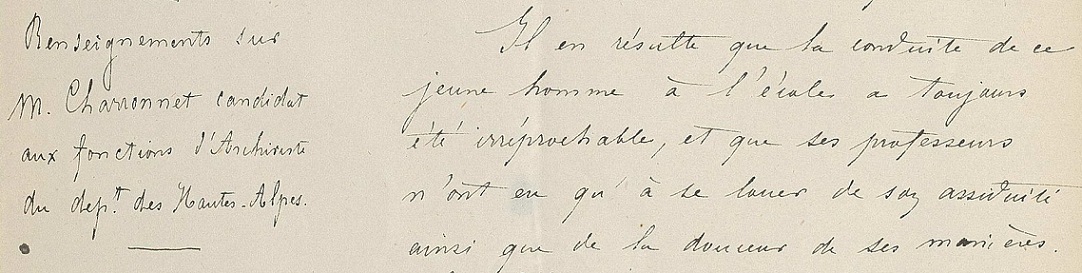 Renseignements sur
M. Charronnet candidat
aux fonctions d'Archiviste
du dep.tt des Hautes-Alpes.
Il en résulte que la conduite de ce
jeune homme à l'école a toujours
été irréprochable, et que ses professeurs
n'ont eu qu'à se louer de son assiduité
ainsi que de la douceur de ses manières.